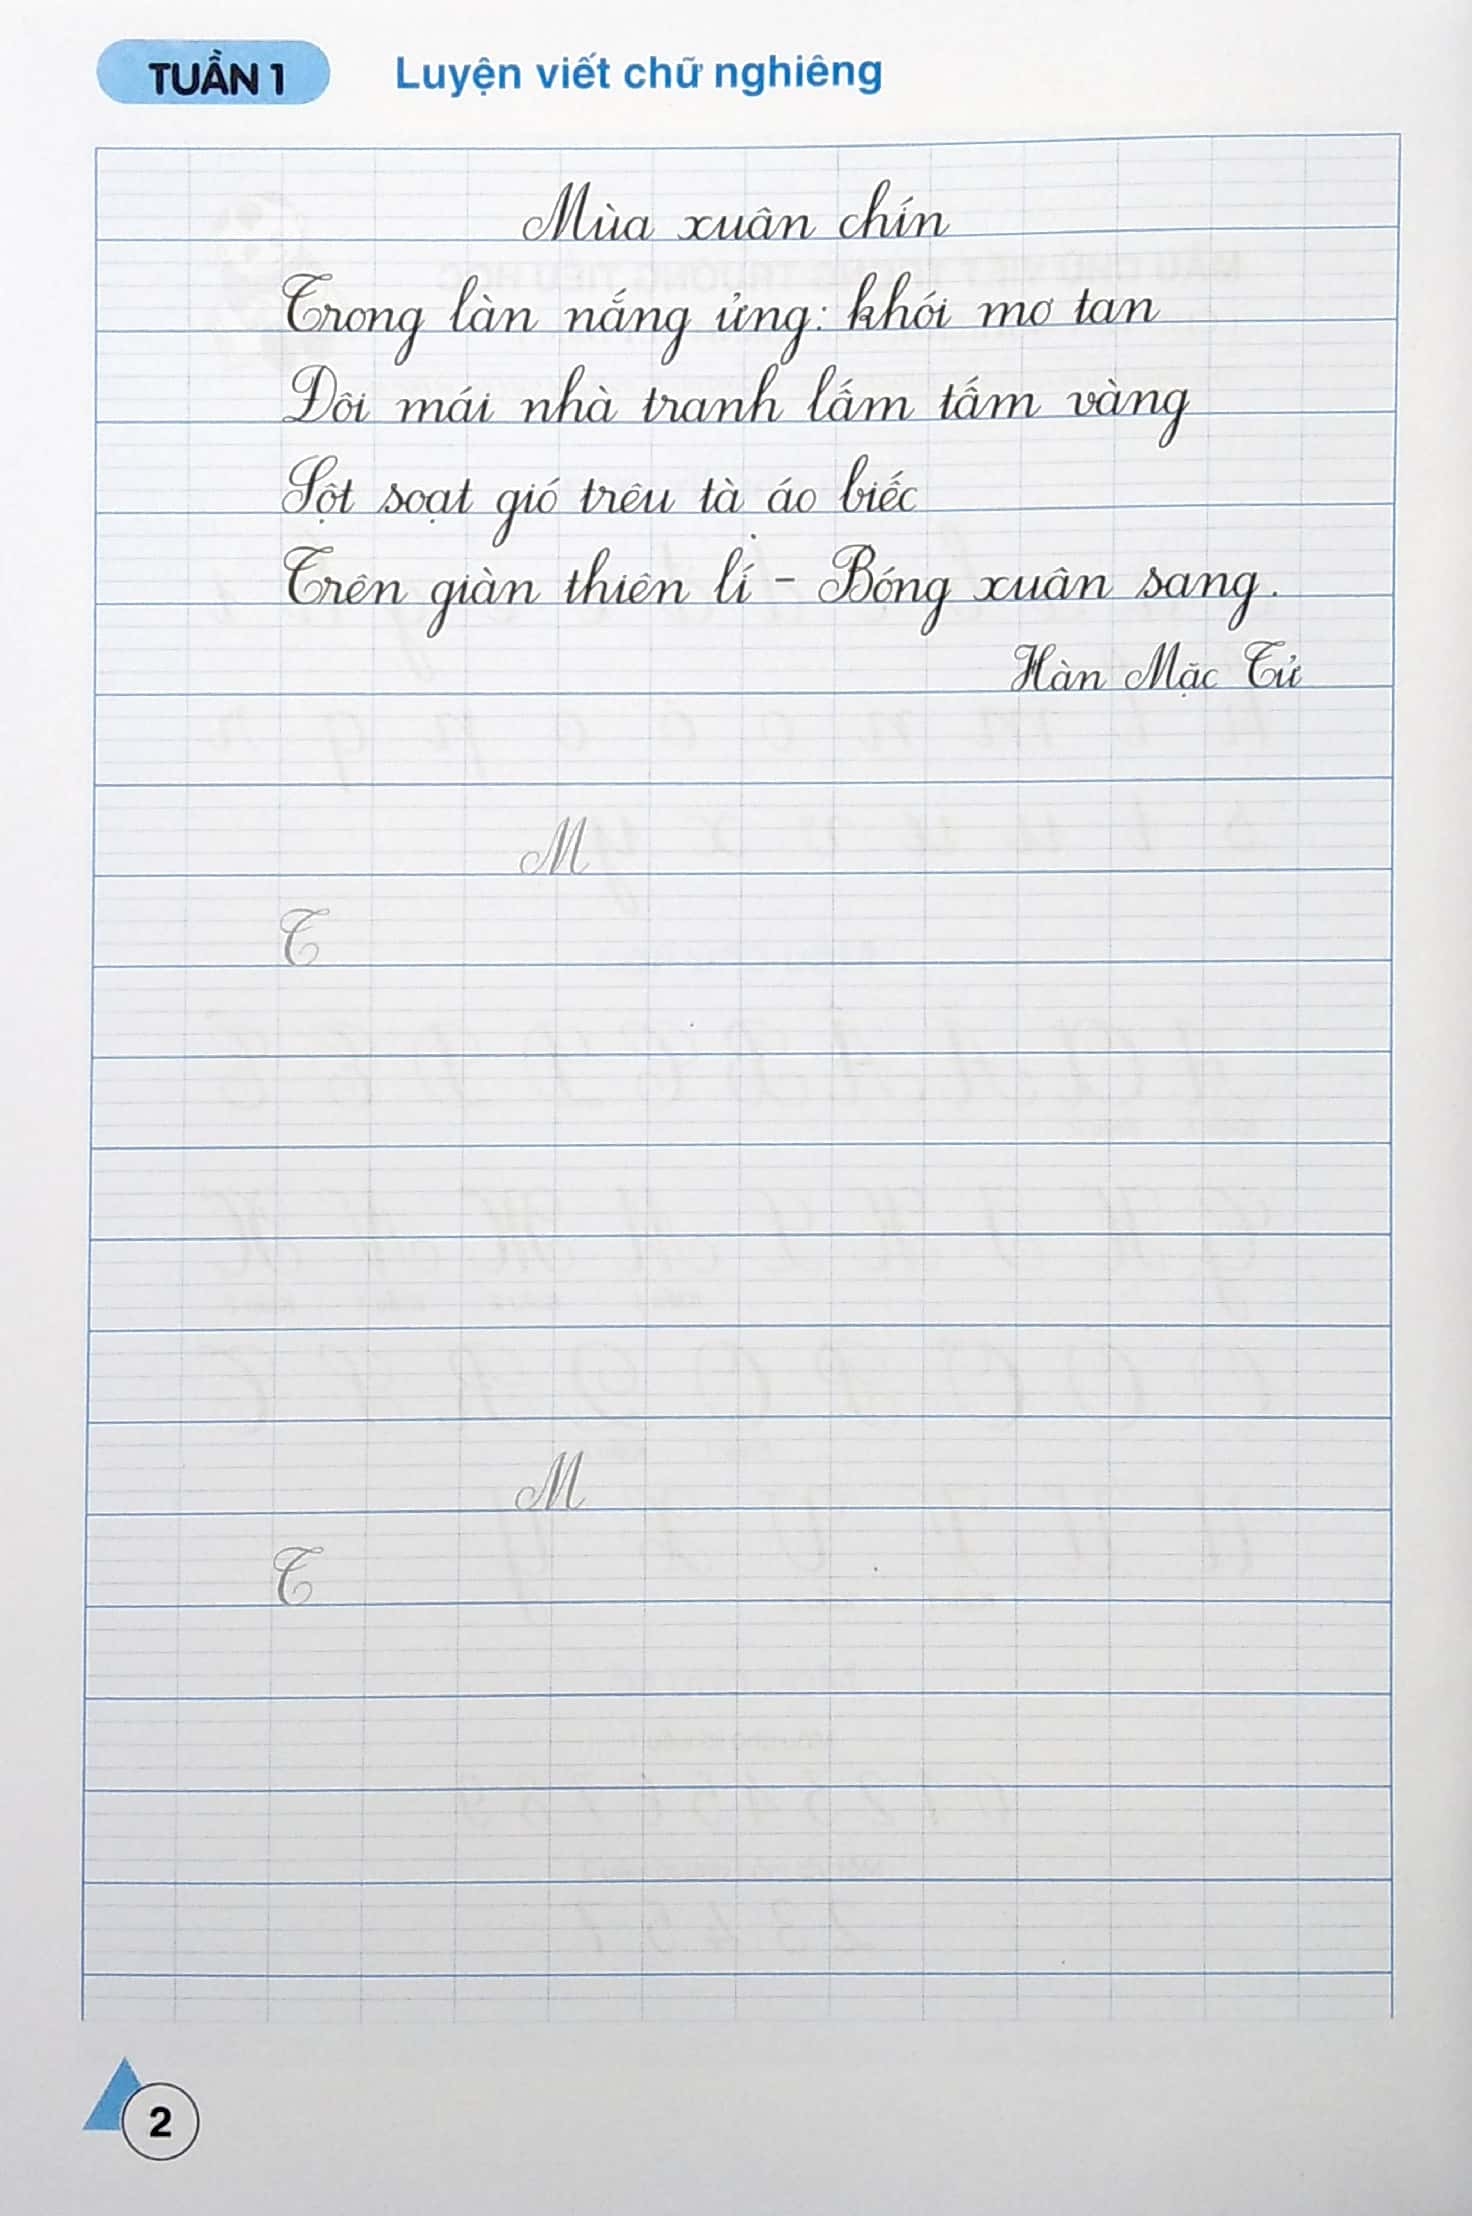 TUẦN 1 Luyện viết chữ nghiêng
Mùa xuân chín
Trong làn nắng ửng: khói mơ tan
Đôi mái nhà tranh lấm tấm vàng
Sột soạt gió trêu tà áo biếc
Trên giàn thiên lí - Bóng xuân sang.
Hàn Mặc Tử
M
T
M
T
2